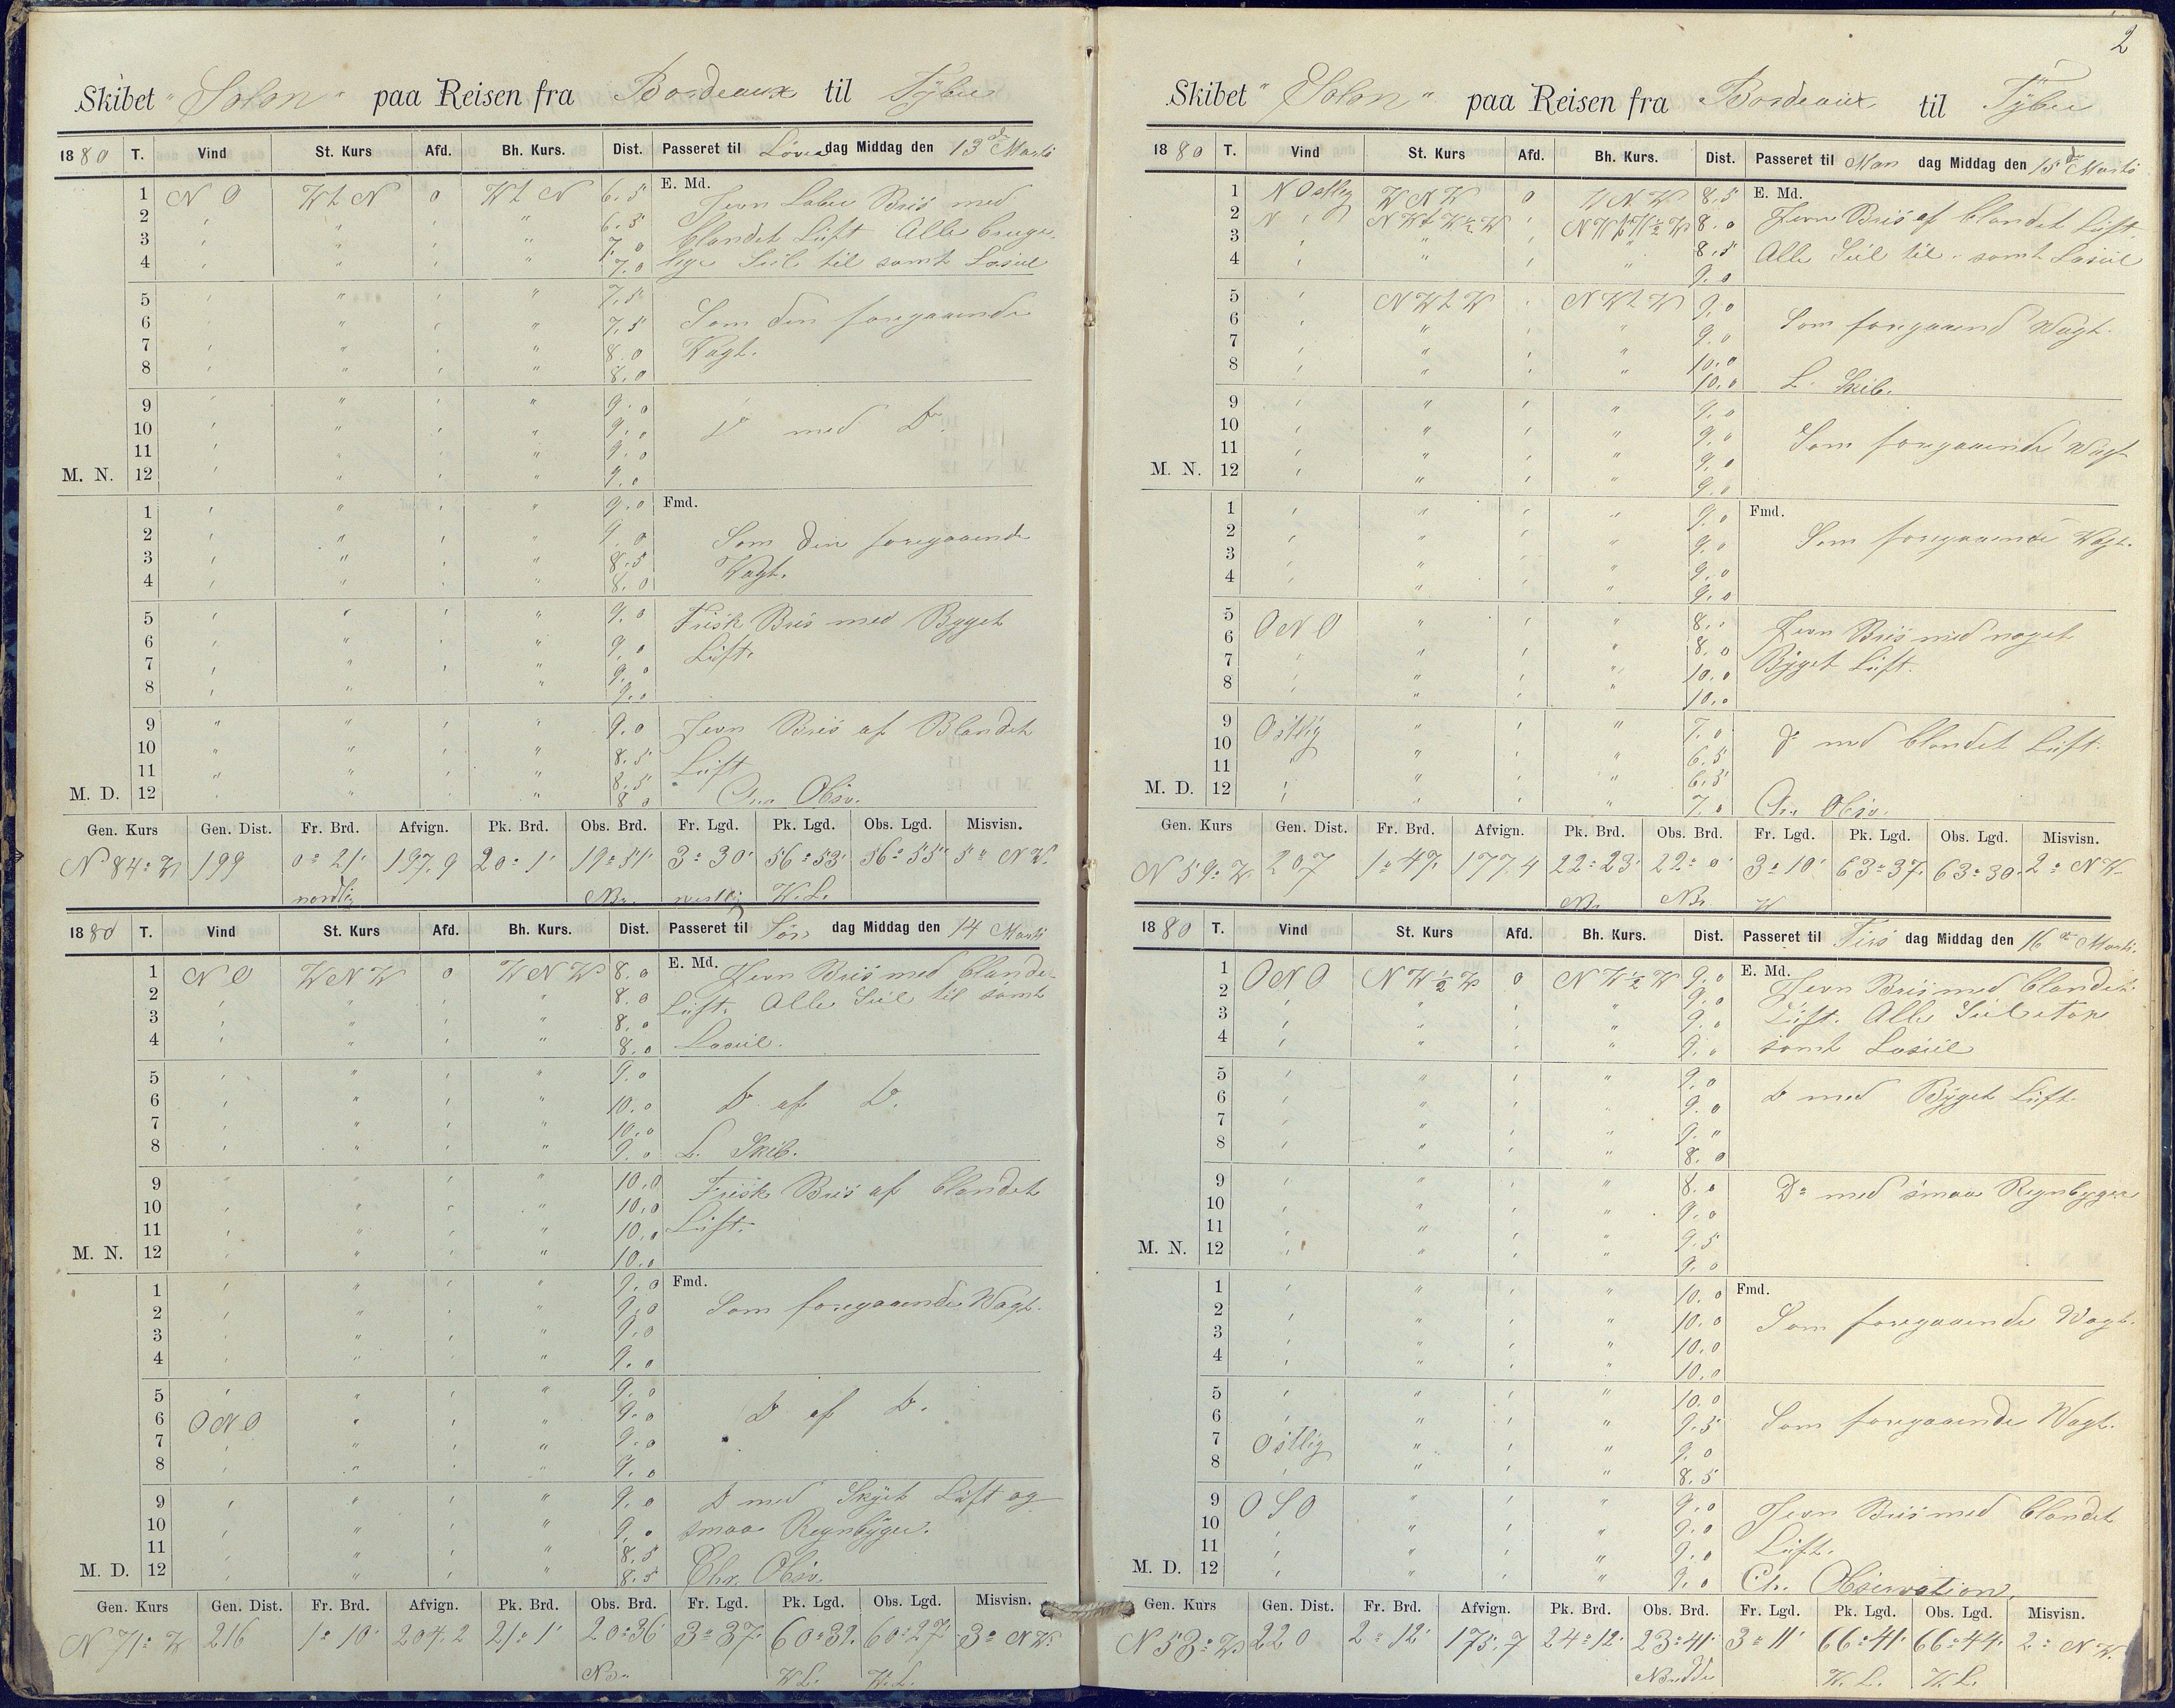 2
Skibet "Solon" paa Reisen fra Bordeaux til Tÿbee
1880 T. Vind St. Kurs Afd. Bh. Kurs. Dist. Passeret til Løver dag Middag den 13de Marts
1 N O W t N 0 W t N 6.5 E. Md. Jevn Laber Bris med
2 6.5 blandet Lüft Alle bruge-
3 7.0
4 7.0 lige Seil til samt Læseil
5 7.5
6 7.5 Som den foregaaende
7 8.0 Vagt.
8 8.0
9 9.0
10 9.0 Do med Do
11 9.0
M. N. 12 9.0
1 9.0 Fmd.
2 9.0 Som den foregaaende
3 8.5 Vagt.
4 8.0
5 9.0 Frisk Bris med Bÿget
6 9.0 Lüft.
7 9.0
8 9.0
9 9.0 Jevn Bris af Blandet
10 8.5 Lüft
11 8.5
M. D. 12 8.0 Chr. Obsv.
Gen. Kurs Gen. Dist. Fr. Brd. Afvign. Pk. Brd. Obs. Brd. Fr. Lgd. Pk. Lgd. Obs. Lgd. Misvisn.
N 84° W 199 0° 21' 197,9 20° 1' 19° 51' 3° 30' 56° 53' 56° 55' 5° N W.
nordlig Br. westlig W. L.
1880 T. Vind St. Kurs Afd. Bh. Kurs. Dist. Passeret til Søn dag Middag den 14 Marts
1 N O W N W 0 W N W 8.0 E. Md. Jevn Bris med blandet
2 8.0 Lüft. Alle Seil til samt
3 8.0
4 8.0 Læseil.
5 9.0
6 10.0 Do af Do.
7 10.0
8 9.0 L. Skib.
9 10.0 Frisk Bris af blandet
10 10.0
11 10.0 Lüft.
M. N. 12 10.0
1 9.0 Fmd.
2 9.0 Som foregaaende Vagt.
3 9.0
4 9.0
5 9.0
6 O N O 9.0 Do af Do.
7 9.0
8 9.0
9 9.0 Do med Skÿet Lüft og
10 9.0 smaa Regnbÿger.
11 8.5
M. D. 12 8.5 Chr. Obsv.
Gen. Kurs Gen. Dist. Fr. Brd. Afvign. Pk. Brd. Obs. Brd. Fr. Lgd. Pk. Lgd. Obs. Lgd. Misvisn.
N 71° W 216 1° 10' 204.2 21° 1' 20° 36' 3° 37' 60° 32' 60° 27' 3° N W.
W. L. W. L.
Skibet "Solon" paa Reisen fra Bordeaux til Tÿbee
1880 T. Vind St. Kurs Afd. Bh. Kurs. Dist. Passeret til Man dag Middag den 15de Marts
1 N Ostlig W N W 0 W N W 8.5 E. Md.
2 N O N W t W ½ W N W t W ½ W 8.0 Jevn Bris af blandet Lüft
3 8.5 Alle Seil til samt Læseil
4 9.0
5 N W t W N W t W 9.0
6 9.0 Som foregaaend Vagt.
7 10.0
8 10.0 L. Skib.
9 9.0
10 9.0 Som foregaaende Vagt
11 9.0
M. N. 12 9.0
1 9.0 Fmd.
2 9.0 Som foregaaende Vagt.
3 9.0
4 9.0
5 8.
6 O N O 8.0 Jevn Bris med noget
7 10.0 Bÿget Lüft.
8 10.0
9 Ostlig 7.0
10 6.5 Do med blandet Lüft.
11 6.5
M. D. 12 7.0 Chr. Obsv.
Gen. Kurs Gen. Dist. Fr. Brd. Afvign. Pk. Brd. Obs. Brd. Fr. Lgd. Pk. Lgd. Obs. Lgd. Misvisn.
N 59° W 207 1° 47' 177.4 22° 23' 22° 0' 3° 10' 63° 37' 63° 30' 2° N W
Br. Br. W
1880 T. Vind St. Kurs Afd. Bh. Kurs. Dist. Passeret til Tirs dag Middag den 16de Marts.
1 O N O N W ½ W 0 N W ½ W 9.0 E. Md. Jevn Bris med blandet
2 9.0
3 9.0 Lüft. Alle Seil
4 9.0 samt Læseil
5 9.0
6 9.0 Do med Bÿget Lüft.
7 9.0
8 8.0
9 8.0 Do med smaa Regnbyger
10 9.0
11 9.5
M. N. 12 9.0
1 10.0 Fmd.
2 10.0 Som foregaaende Vagt.
3 10.0
4 10.0
5 10.0
6 9.5 Som foregaaende Vagt.
7 Ostlig 9.0
8 8.5
9 O S O 9.0 Jevn Bris med blandet
10 9.0
11 9.0 Lüft.
M. D. 12 9.0 Ch. Observation,
Gen. Kurs Gen. Dist. Fr. Brd. Afvign. Pk. Brd. Obs. Brd. Fr. Lgd. Pk. Lgd. Obs. Lgd. Misvisn.
N 53° W 220 2° 12' 175,7 24° 12' 23° 41' 3° 11' 66° 41' 66° 44' 2° N W.
Bredde W. L. W. L.